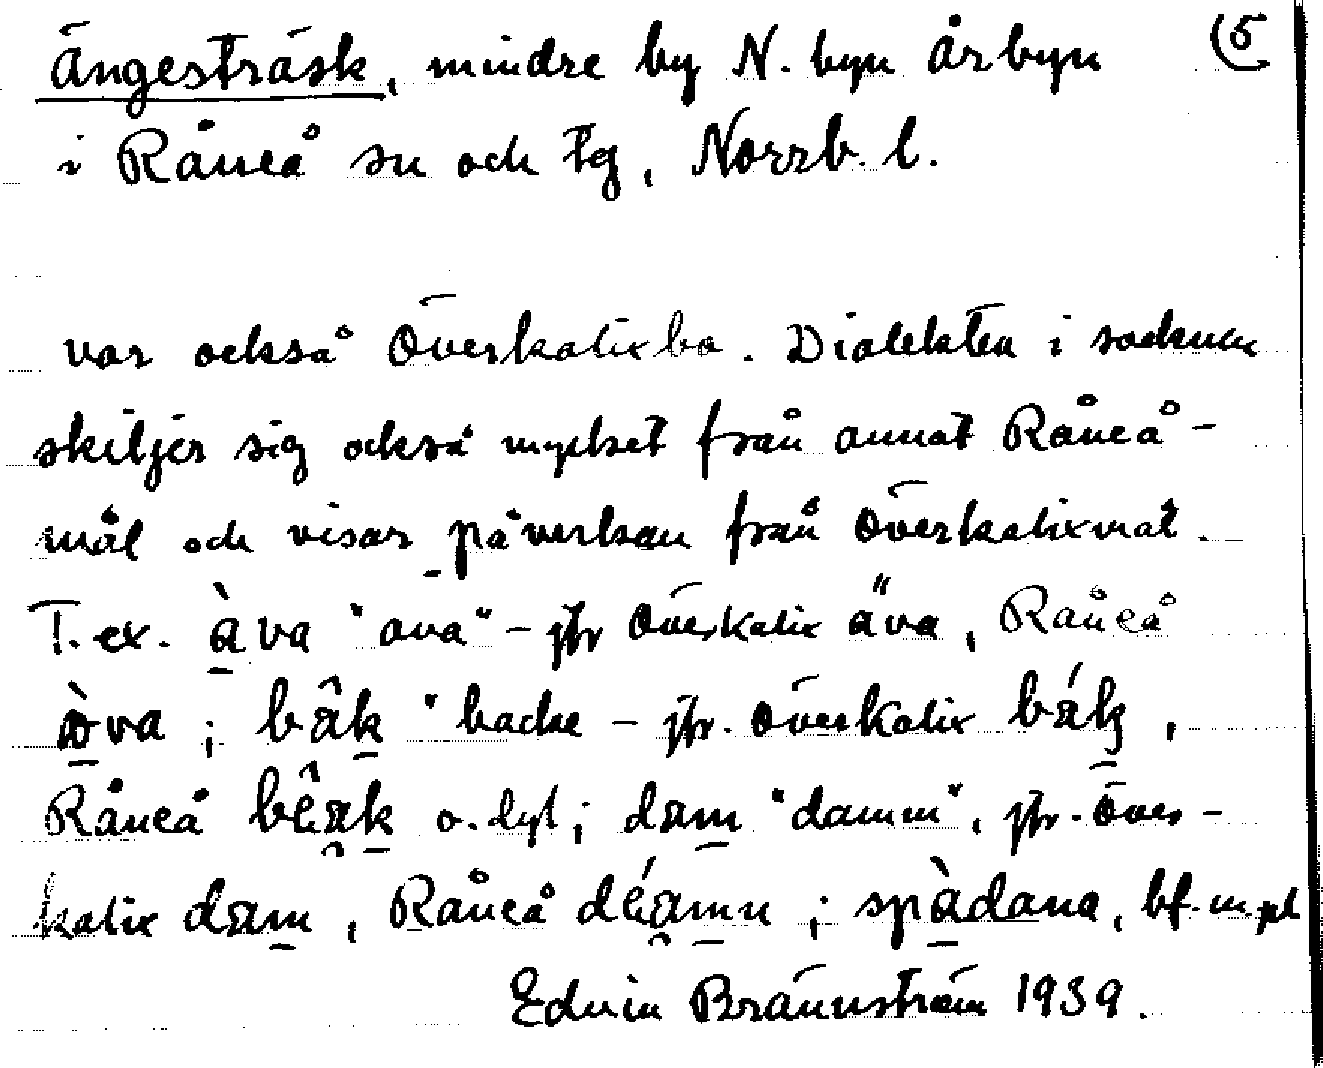 Ängesträsk, mindre by N. byn Årbyn (5
i Råneå sn och tg, Norrb. l.
var också Överkalixbo. Dialekten i socknen
skiljer sig också mycket från annat Råneå-
mål och visar påverkan från Överkalixmål.
T. ex. à̱va "ava" – jfr Överkalix äva, Råneå
ò̱va ; bâḵ "backe – jfr. Överkalix báḵ ,
Råneå bêa̯ḵ o. dyl ; dam̱ "damm", jfr. Över-
kalix dam̱ , Råneå déa̯m̱n ; spà̱dana, bf. m. pl
Edvin Brännström 1939.